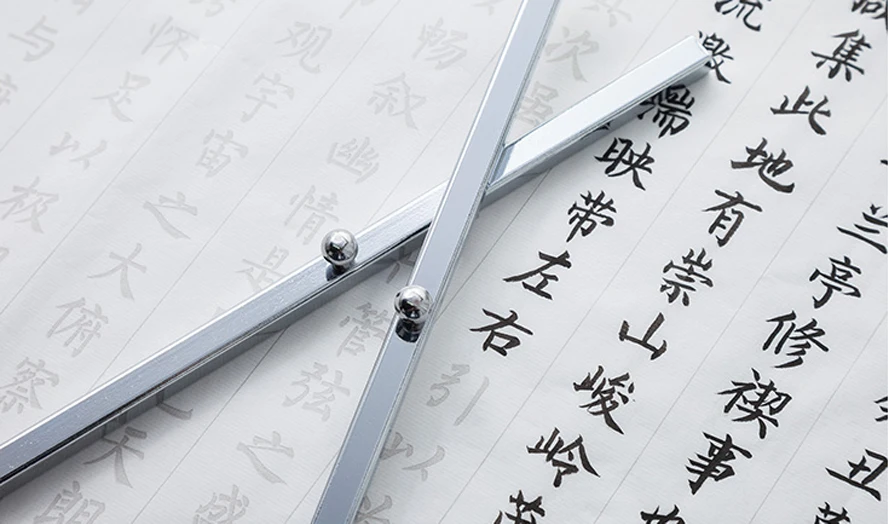 丑
兰亭修禊事
集此地有崇山峻岭茂
流激湍映带左右引以
次虽管弦之盛
畅叙幽情是天朗
观宇宙之大俯察
怀足以极
与